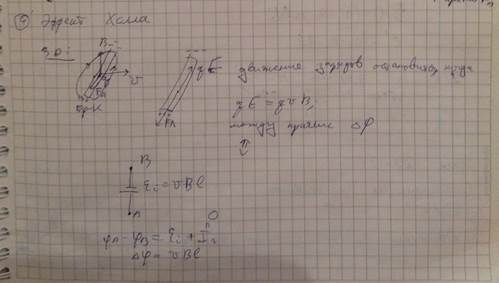 ④ Эффект Холла
3D:
B
v
Fл
qE
Fл
движение зарядов остановится, когда
qE = qvB,
между краями Δφ
⇕
B
ℰi = vBl
A
0
φA - φB = ℰi + Ir
Δφ = vBl